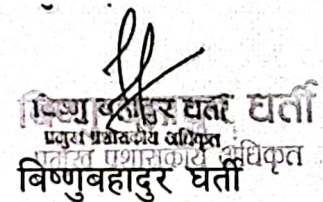 बिष्णु बहादुर घर्ती घर्ती
प्रमुख प्रशासकीय अधिकृत
प्रमुख प्रशासकीय अधिकृत
बिष्णुबहादुर घर्ती